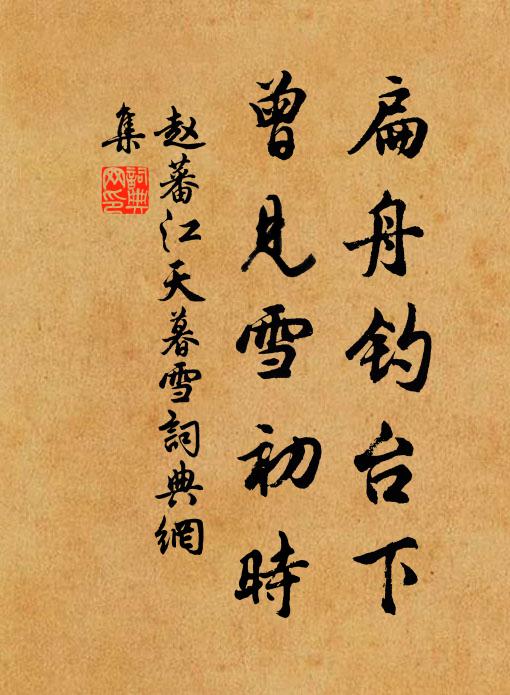 扁舟钓台下
曾見雪初時
赵蕃江天暮雪詞典網
集
詞典
网印